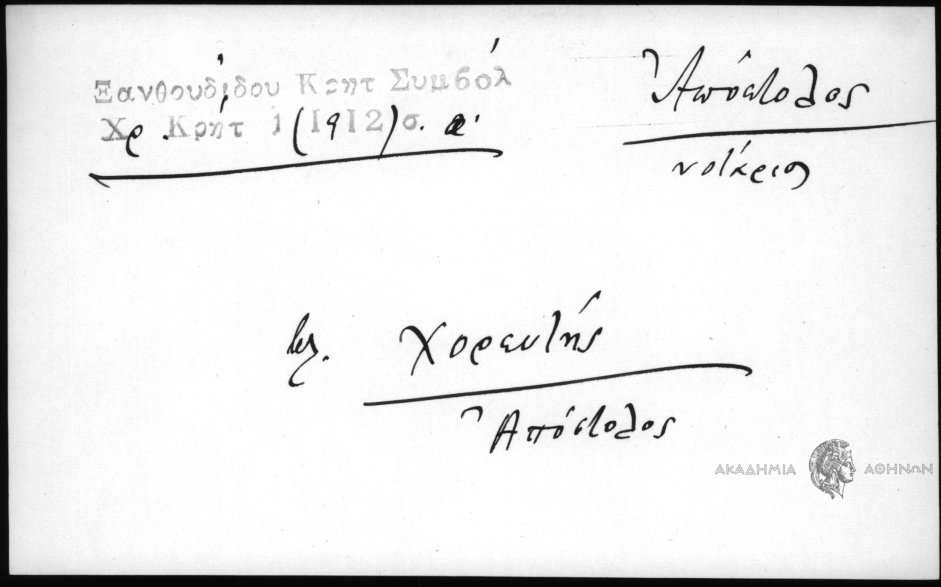 Ξανθουδίδου Κρητ Συμβόλ
Χρ. Κρήτ 1 (1912) σ.
Ἀπόστολος
νοτάριος
βλ. Χορευτής
Ἀπόστολος
ΑΚΑΔΗΜΙΑ ΑΘΗΝΩΝ